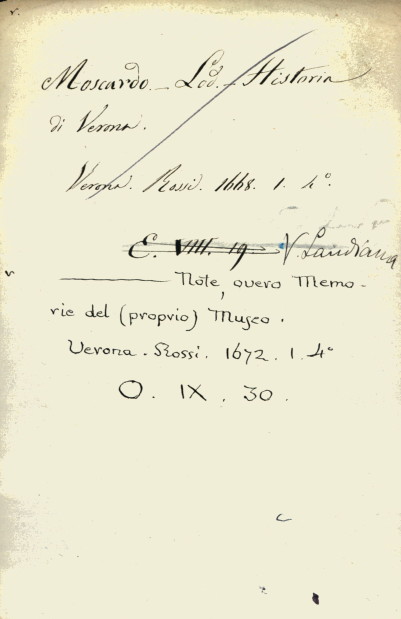 Moscardo - Lod. - Historia
di Verona.
Verona. Rossi. 1668. 1. 4°.
E. VIIII. 19. V. Landiana
Note, overo Memo-
rie del (proprio) Museo.
Verona. Rossi. 1672. 1. 4°
O. IX. 30.